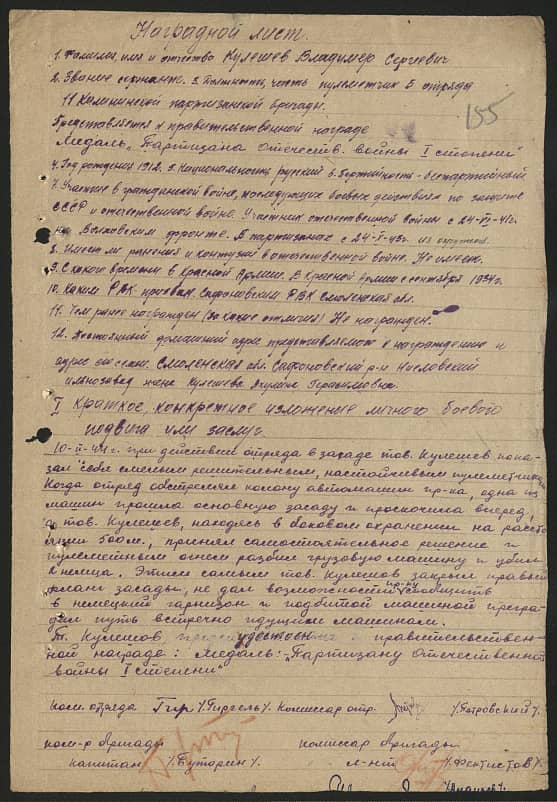 Наградной лист.
155
1. Фамилия, имя и отчество Кулешев Владимер Сергеевич
2. Звание сержант. 3. Должность, часть пулеметчик 5 отряда
11 Калининской партизанской бригады.
Представляется к правительственной награде
Медаль „Партизана Отечеств. войны I степени"
4. Год рождения 1912. 5. Национальность русский 6. Партийность - беспартийный
7. Участие в гражданской войне, последующих боевых действиях по защите
СССР и отечественной войне. Участник отечественной войны с 24-VI-41г.
на Волховским фронте. В партизанах с 24-V-43г. из
8. Имеет ли ранения и контузии в отечественной войне. Не имеет.
9. С какого времени в Красной Армии. В Красной Армии с сентября 1934г.
10. Каким РВК призван. Сафоновским РВК Смоленская обл.
11. Чем ранее награжден (за какие отличия) Не награжден.
12. Постоянный домашний адрес представляемого к награждению и
адрес его семьи. Смоленская обл. Сафоновский р-н
жена Кулешева Акулина Герасимовна.
I Краткое, конкретное изложение личного боевого
подвига или заслуг
10-II-44г. при действии отряда в засаде тов. Кулешев пока-
зал себя смелым решительным, настойчивым пулеметчиком
Когда отряд обстрелял колону автомашин пр-ка, одна из
машин прошла основную засаду и проскочила вперед,
а тов. Кулешев, находясь в боковом охранении на расто-
янии 500м., принял самостоятельное решение и
пулеметным огнем разбил грузовую машину и убил
2 немца. Этим самым тов. Кулешев закрыл правый
фланг засады, не дал возможности пр-ку сообщить
в немецкий гарнизон и подбитой машиной прегра-
дил путь встречно идущим машинам.
Т. Кулешов удостоен правительствен-
ной награде: Медаль: „Партизану Отечественной
войны I степени"
ком. отряда /Гиргель/. Комиссар отр. /Петровский/.
ком-р бригады комиссар бригады
капитан /Бутарин/. л-нт